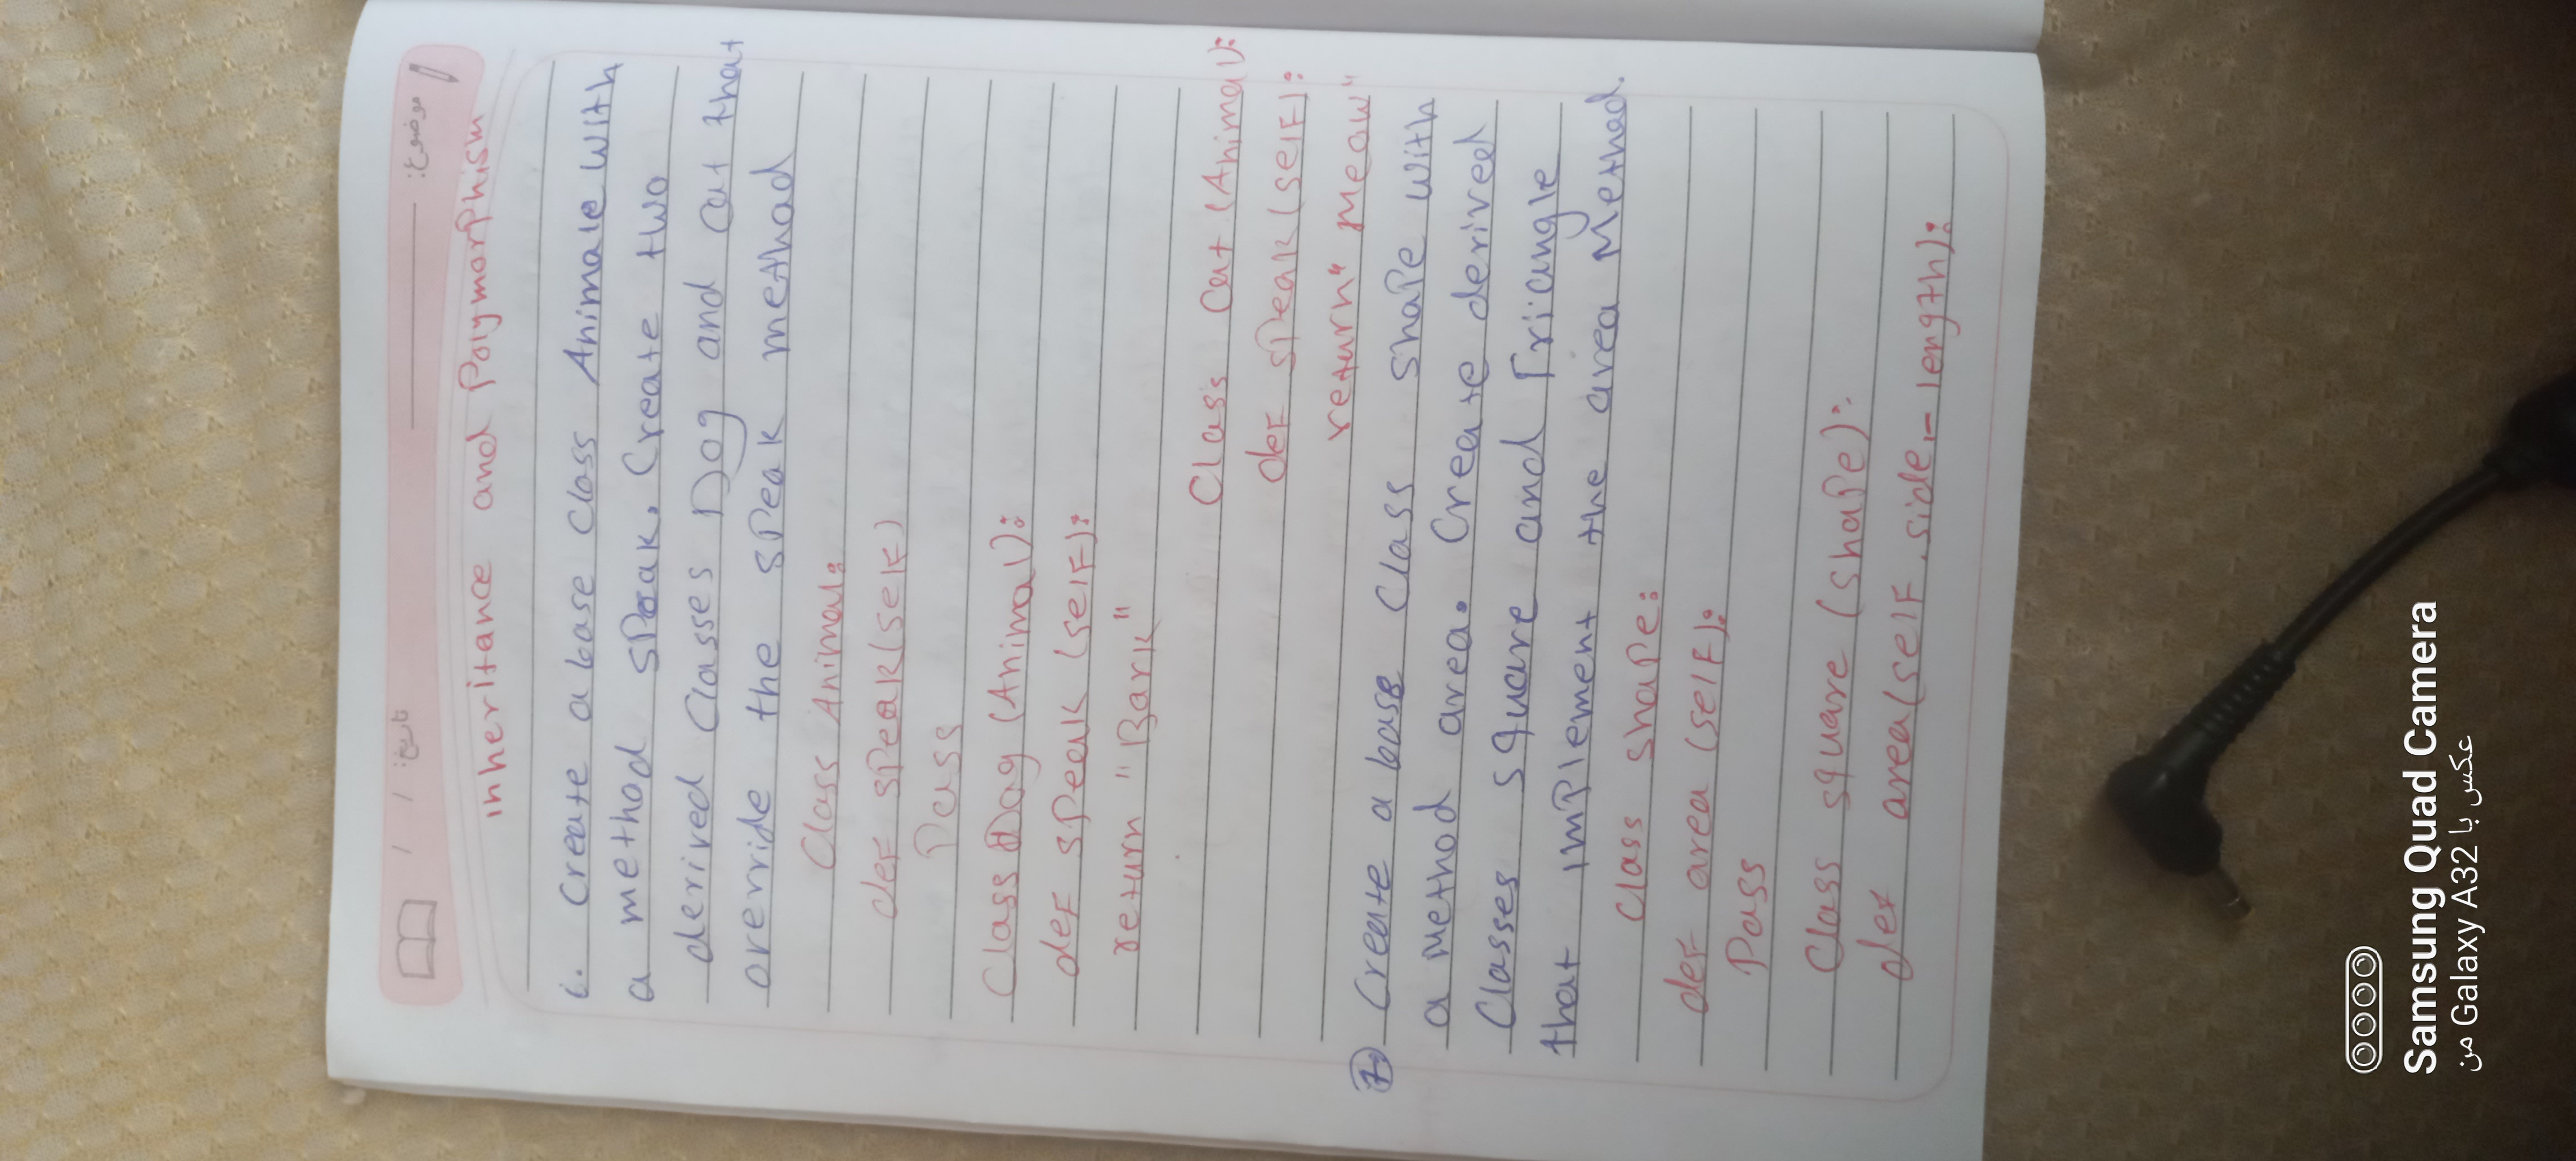 موضوع: تاریخ: / /
inheritance and Polymorphism
6. Create a base class Animale with
a method speak. Create two
derived Classes Dog and cat that
override the speak methad
Class Animal:
def speak(self)
Pass
Class Dog (Animal):
def speak (self):
return "Bark"
Class Cat (Animal):
def speak(self):
return" meow"
7 Create a base Class shape with
a Method area. Create derived
Classes square and Triangle
that implement the area Method.
Class shape:
def area (self):
Pass
Class square (shape):
def area(self, side_length):
Samsung Quad Camera
عکس با Galaxy A32 من